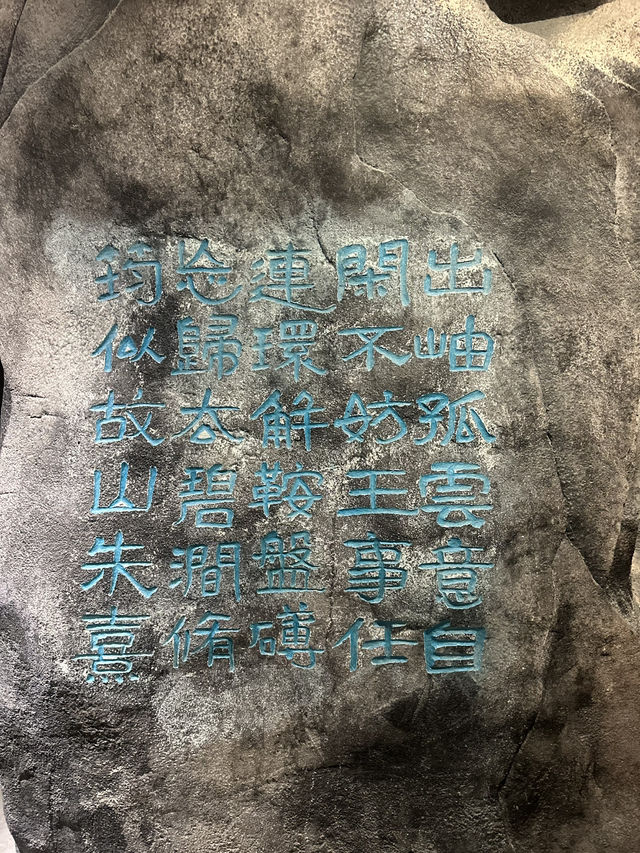 出岫孤雲意自
閑不妨王事任
連環解鞍盤礴
忘歸去碧澗脩
筠似故山朱熹